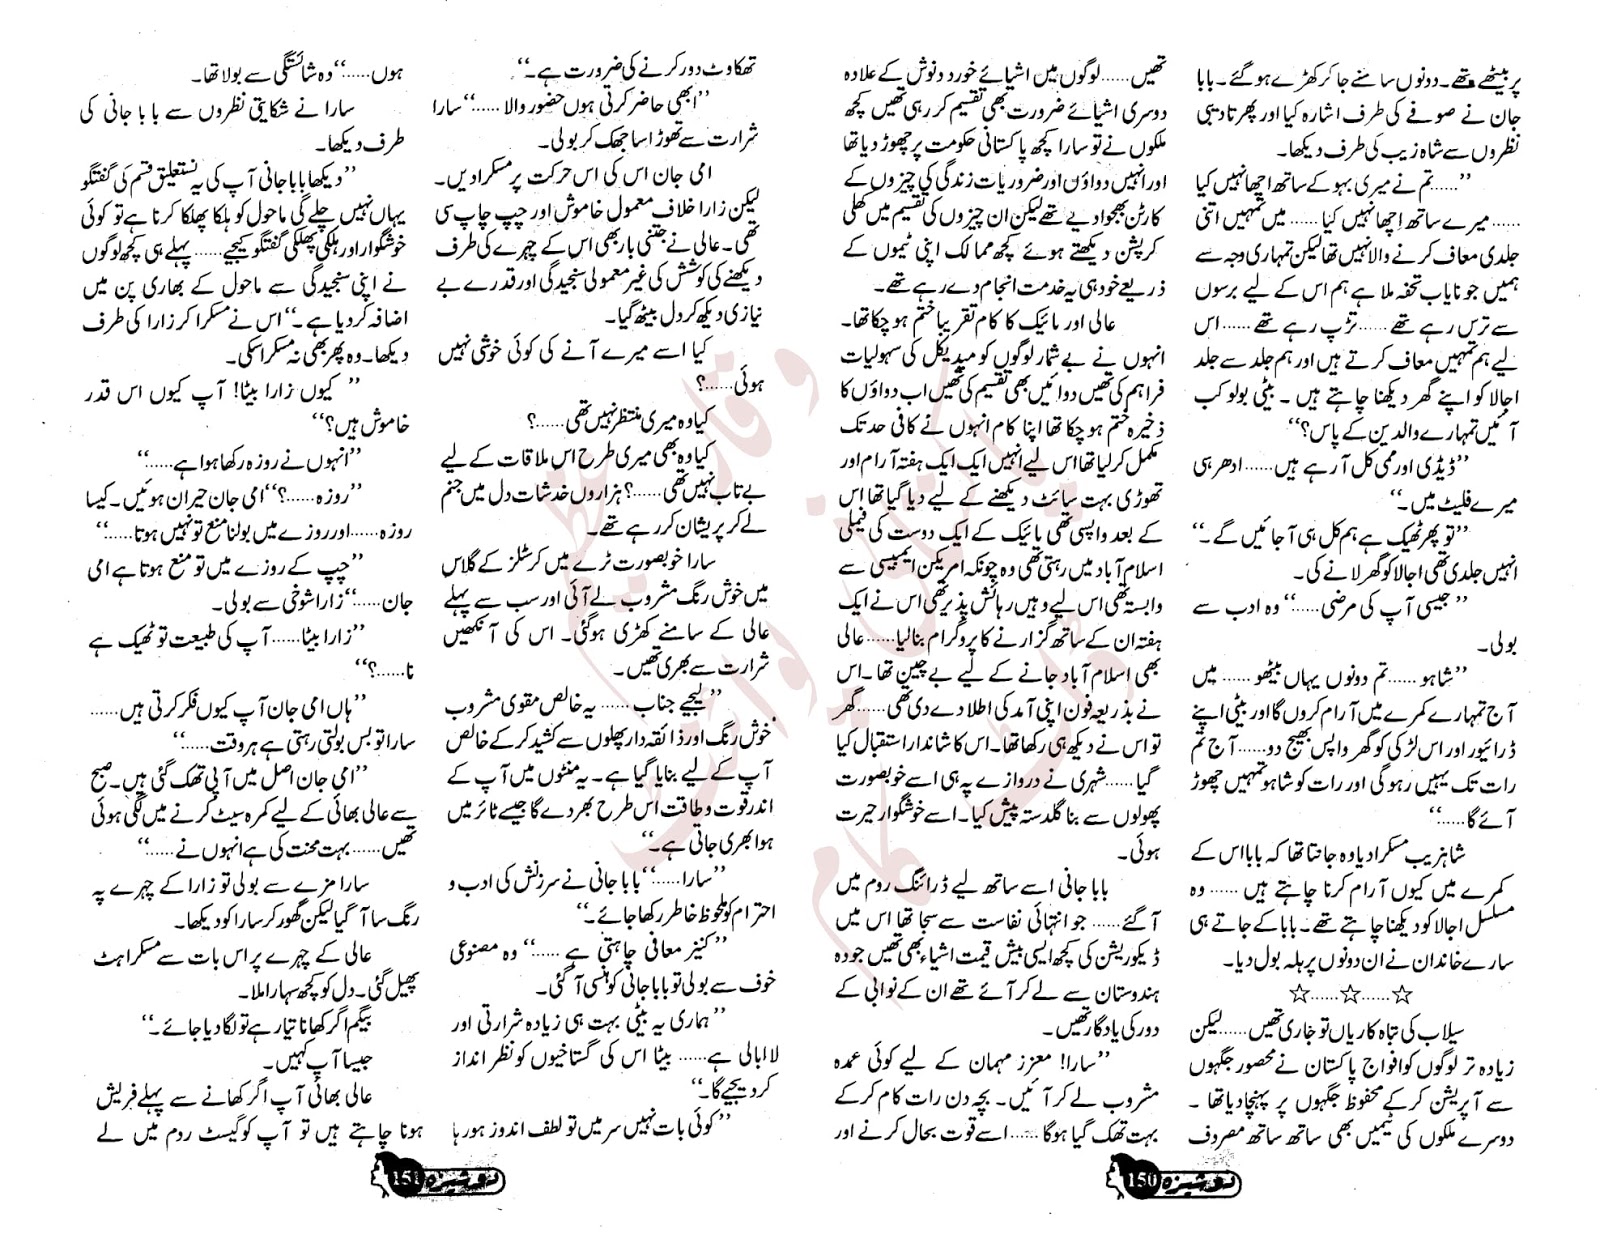 پر بیٹھے تھے۔ دونوں سامنے جا کر کھڑے ہو گئے۔ بابا
جان نے صوفے کی طرف اشارہ کیا اور پھر تادیبی
نظروں سے شاہ زیب کی طرف دیکھا۔
’’......تم نے میری بہو کے ساتھ اچھا نہیں کیا
......میرے ساتھ اچھا نہیں کیا...... میں تمہیں اتنی
جلدی معاف کرنے والا نہیں تھا لیکن تمہاری وجہ سے
ہمیں جو نایاب تحفہ ملا ہے ہم اس کے لیے برسوں
سے ترس رہے تھے ......تڑپ رہے تھے...... اس
لیے ہم تمہیں معاف کرتے ہیں اور ہم جلد سے جلد
اجالا کو اپنے گھر دیکھنا چاہتے ہیں۔ بیٹی بولو کب
آئیں تمہارے والدین کے پاس؟‘‘
’’ڈیڈی اور ممی کل آ رہے ہیں...... ادھر ہی
میرے فلیٹ میں۔‘‘
’’تو پھر ٹھیک ہے ہم کل ہی آ جائیں گے۔‘‘
انہیں جلدی تھی اجالا کو گھر لانے کی۔
’’جیسی آپ کی مرضی......‘‘ وہ ادب سے
بولی۔
’’شاہو...... تم دونوں یہاں بیٹھو...... میں
آج تمہارے کمرے میں آرام کروں گا اور بیٹی اپنے
ڈرائیور اور اس لڑکی کو گھر واپس بھیج دو...... آج تم
رات تک یہیں رہو گی اور رات کو شاہو تمہیں چھوڑ
آئے گا......‘‘
شاہزیب مسکرا دیا وہ جانتا تھا کہ بابا اس کے
کمرے میں کیوں آرام کرنا چاہتے ہیں...... وہ
مسلسل اجالا کو دیکھنا چاہتے تھے۔ بابا کے جاتے ہی
سارے خاندان نے ان دونوں پر ہلہ بول دیا۔
☆......☆......☆
سیلاب کی تباہ کاریاں تو جاری تھیں......لیکن
زیادہ تر لوگوں کو افواج پاکستان نے محصور جگہوں
سے آپریشن کر کے محفوظ جگہوں پر پہنچا دیا تھا۔
دوسرے ملکوں کی ٹیمیں بھی ساتھ ساتھ مصروف
تھیں......لوگوں میں اشیائے خورد و نوش کے علاوہ
دوسری اشیائے ضرورت بھی تقسیم کر رہی تھیں کچھ
ملکوں نے تو سارا کچھ پاکستانی حکومت پر چھوڑ دیا تھا
اور انہیں دواؤں اور ضروریات زندگی کی چیزوں کے
کارٹن بھجوا دیے تھے لیکن ان چیزوں کی تقسیم میں کھلی
کرپشن دیکھتے ہوئے کچھ ممالک اپنی ٹیموں کے
ذریعے خود ہی یہ خدمت انجام دے رہے تھے۔
عالی اور مائیک کا کام تقریباً ختم ہو چکا تھا۔
انہوں نے بے شمار لوگوں کو میڈیکل کی سہولیات
فراہم کی تھیں دوائیں بھی تقسیم کی تھیں اب دواؤں کا
ذخیرہ ختم ہو چکا تھا اپنا کام انہوں نے کافی حد تک
مکمل کر لیا تھا اس لیے انہیں ایک ایک ہفتہ آرام اور
تھوڑی بہت سائٹ دیکھنے کے لیے دیا گیا تھا اس
کے بعد واپسی تھی مائیک کے ایک دوست کی فیملی
اسلام آباد میں رہتی تھی وہ چونکہ امریکن ایمبیسی سے
وابستہ تھی اس لیے وہیں رہائش پذیر تھی اس نے ایک
ہفتہ ان کے ساتھ گزارنے کا پروگرام بنا لیا......عالی
بھی اسلام آباد جانے کے لیے بے چین تھا۔ اس
نے بذریعہ فون اپنی آمد کی اطلاع دے دی تھی......گھر
تو اس نے دیکھ ہی رکھا تھا۔ اس کا شاندار استقبال کیا
گیا......شہری نے دروازے پہ ہی اسے خوبصورت
پھولوں سے بنا گلدستہ پیش کیا۔ اسے خوشگوار حیرت
ہوئی۔
بابا جانی اسے ساتھ لیے ڈرائنگ روم میں
آ گئے...... جو انتہائی نفاست سے سجا تھا اس میں
ڈیکوریشن کی کچھ ایسی بیش قیمت اشیاء بھی تھیں جو وہ
ہندوستان سے لے کر آئے تھے ان کے نوابی کے
دور کی یادگار تھیں۔
’’سارا! معزز مہمان کے لیے کوئی عمدہ
مشروب لے کر آئیں۔ بچہ دن رات کام کر کے
بہت تھک گیا ہو گا......اسے قوت بحال کرنے اور
150 دوشیزہ
تھکاوٹ دور کرنے کی ضرورت ہے۔‘‘
’’ابھی حاضر کرتی ہوں حضور والا......‘‘سارا
شرارت سے تھوڑا سا جھک کر بولی۔
امی جان اس کی اس حرکت پر مسکرا دیں۔
لیکن زارا خلاف معمول خاموش اور چپ چاپ سی
تھی۔ عالی نے جتنی بار بھی اس کے چہرے کی طرف
دیکھنے کی کوشش کی غیر معمولی سنجیدگی اور قدرے بے
نیازی دیکھ کر دل بیٹھ گیا۔
کیا اسے میرے آنے کی کوئی خوشی نہیں
ہوئی......؟
کیا وہ میری منتظر نہیں تھی......؟
کیا وہ بھی میری طرح اس ملاقات کے لیے
بے تاب نہیں تھی......؟ ہزاروں خدشات دل میں جنم
لے کر پریشان کر رہے تھے۔
سارا خوبصورت ٹرے میں کرسٹلز کے گلاس
میں خوش رنگ مشروب لے آئی اور سب سے پہلے
عالی کے سامنے کھڑی ہو گئی۔ اس کی آنکھیں
شرارت سے بھری تھیں۔
’’لیجیے جناب...... یہ خالص مقوی مشروب
خوش رنگ اور ذائقہ دار پھلوں سے کشید کر کے خالص
آپ کے لیے بنایا گیا ہے۔ یہ منٹوں میں آپ کے
اندر قوت و طاقت اس طرح بھر دے گا جیسے ٹائر میں
ہوا بھری جاتی ہے۔‘‘
’’سارا......‘‘بابا جانی نے سرزنش کی ادب و
احترام کو ملحوظ خاطر رکھا جائے۔‘‘
’’کنیز معافی چاہتی ہے......‘‘ وہ مصنوعی
خوف سے بولی تو بابا جانی کو ہنسی آ گئی۔
’’ہماری یہ بیٹی بہت ہی زیادہ شرارتی اور
لاابالی ہے...... بیٹا اس کی گستاخیوں کو نظر انداز
کر دیجیے گا۔‘‘
’’کوئی بات نہیں سر میں تو لطف اندوز ہو رہا
ہوں......‘‘وہ شائستگی سے بولا تھا۔
سارا نے شکایتی نظروں سے بابا جانی کی
طرف دیکھا۔
’’دیکھا بابا جانی آپ کی یہ نستعلیق قسم کی گفتگو
یہاں نہیں چلے گی ماحول کو ہلکا پھلکا کرنا ہے تو کوئی
خوشگوار اور ہلکی پھلکی گفتگو کیجیے......پہلے ہی کچھ لوگوں
نے اپنی سنجیدگی سے ماحول کے بھاری پن میں
اضافہ کر دیا ہے۔‘‘اس نے مسکرا کر زارا کی طرف
دیکھا۔ وہ پھر بھی نہ مسکرا سکی۔
’’کیوں زارا بیٹا! آپ کیوں اس قدر
خاموش ہیں؟‘‘
’’انہوں نے روزہ رکھا ہوا ہے......‘‘
’’روزہ......؟‘‘امی جان حیران ہوئیں۔ کیسا
روزہ......اور روزے میں بولنا منع تو نہیں ہوتا......‘‘
’’چپ کے روزے میں تو منع ہوتا ہے امی
جان......‘‘زارا شوخی سے بولی۔
’’زارا بیٹا......آپ کی طبیعت تو ٹھیک ہے
نا......؟‘‘
’’ہاں امی جان آپ کیوں فکر کرتی ہیں......
سارا تو بس بولتی رہتی ہے ہر وقت......‘‘
’’امی جان اصل میں آپی تھک گئی ہیں۔ صبح
سے عالی بھائی کے لیے کمرہ سیٹ کرنے میں لگی ہوئی
تھیں......بہت محنت کی ہے انہوں نے......‘‘
سارا مزے سے بولی تو زارا کے چہرے پہ
رنگ سا آ گیا لیکن گھور کر سارا کو دیکھا۔
عالی کے چہرے پر اس بات سے مسکراہٹ
پھیل گئی۔ دل کو کچھ سہارا ملا۔
بیگم اگر کھانا تیار ہے تو لگا دیا جائے۔‘‘
جیسا آپ کہیں۔
عالی بھائی آپ اگر کھانے سے پہلے فریش
ہونا چاہتے ہیں تو آپ کو گیسٹ روم میں لے
151 دوشیزہ